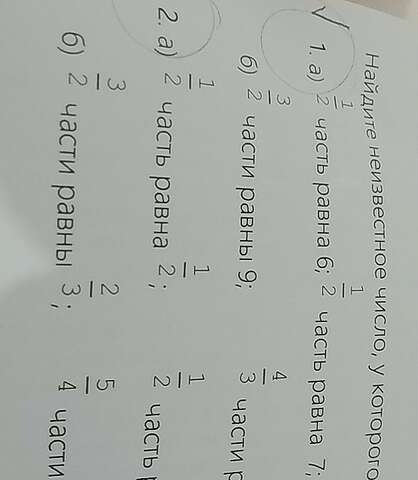 Найдите неизвестное число, у которого
1. а) 1/2 часть равна 6; 1/2 часть равна 7;
б) 3/2 части равны 9; 4/3 части
2. а) 1/2 часть равна 1/2; 1/2 часть
б) 3/2 части равны 2/3; 5/4 части